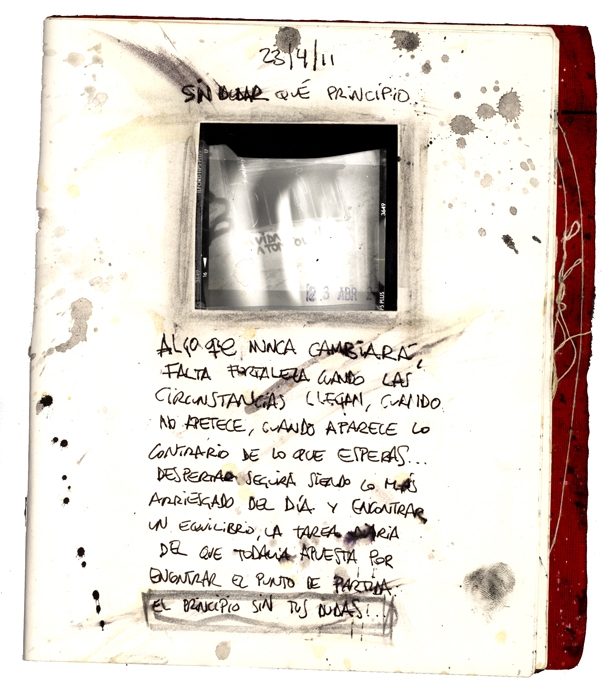 23/4/11
SIN DUDAR QUÉ PRINCIPIO.
3649
23 ABR
ALGO QUE NUNCA CAMBIARÁ,
FALTA FORTALEZA CUANDO LAS
CIRCUNSTANCIAS LLEGAN, CUANDO
NO APETECE, CUANDO APARECE LO
CONTRARIO DE LO QUE ESPERAS...
DESPERTAR SEGUIRÁ SIENDO LO MÁS
ARRIESGADO DEL DÍA. Y ENCONTRAR
UN EQUILIBRIO, LA TAREA DIARIA
DEL QUE TODAVÍA APUESTA POR
ENCONTRAR EL PUNTO DE PARTIDA.
EL PRINCIPIO SIN TUS DUDAS!...